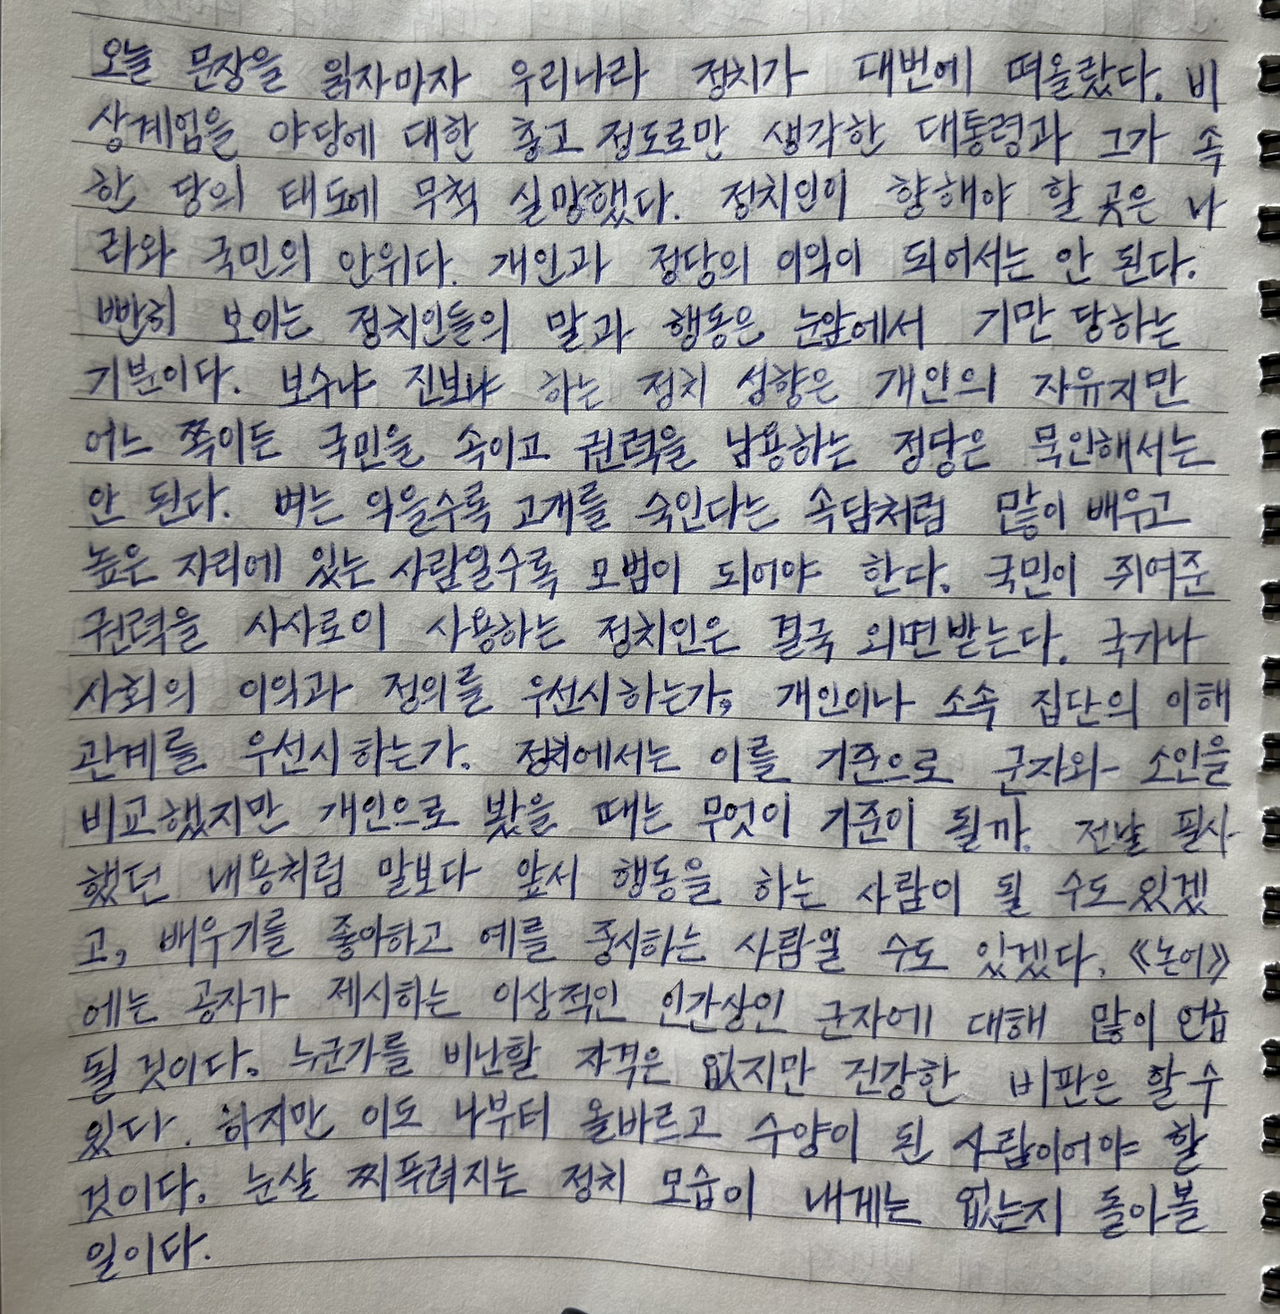 오늘 문장을 읽자마자 우리나라 정치가 대번에 떠올랐다. 비
상계엄을 야당에 대한 충고 정도로만 생각한 대통령과 그가 속
한 당의 태도에 무척 실망했다. 정치인이 향해야 할 곳은 나
라와 국민의 안위다. 개인과 정당의 이익이 되어서는 안 된다.
빤히 보이는 정치인들의 말과 행동은 눈앞에서 기만 당하는
기분이다. 보수냐 진보냐 하는 정치 성향은 개인의 자유지만
어느 쪽이든 국민을 속이고 권력을 남용하는 정당은 묵인해서는
안 된다. 벼는 익을수록 고개를 숙인다는 속담처럼 많이 배우고
높은 자리에 있는 사람일수록 모범이 되어야 한다. 국민이 쥐여준
권력을 사사로이 사용하는 정치인은 결국 외면받는다. 국가나
사회의 이익과 정의를 우선시하는가, 개인이나 소속 집단의 이해
관계를 우선시하는가. 정치에서는 이를 기준으로 군자와 소인을
비교했지만 개인으로 봤을 때는 무엇이 기준이 될까. 전날 필사
했던 내용처럼 말보다 앞서 행동을 하는 사람이 될 수도 있겠
고, 배우기를 좋아하고 예를 중시하는 사람일 수도 있겠다. 《논어》
에는 공자가 제시하는 이상적인 인간상인 군자에 대해 많이 언급
될 것이다. 누군가를 비난할 자격은 없지만 건강한 비판은 할 수
있다. 하지만 이도 나부터 올바르고 수양이 된 사람이어야 할
것이다. 눈살 찌푸려지는 정치 모습이 내게는 없는지 돌아볼
일이다.